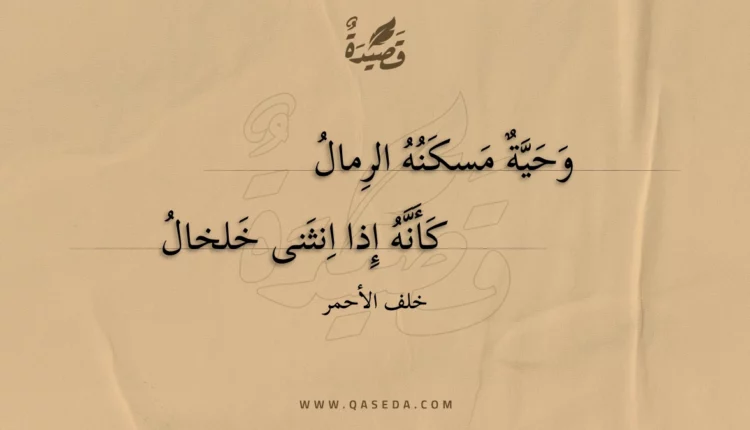 قَصِيدَةٌ
وَحَيَّةٌ مَسكَنُهُ الرِمالُ
كَأَنَّهُ إِذا اِنثَنى خَلخالُ
خلف الأحمر
WWW.QASEDA.COM